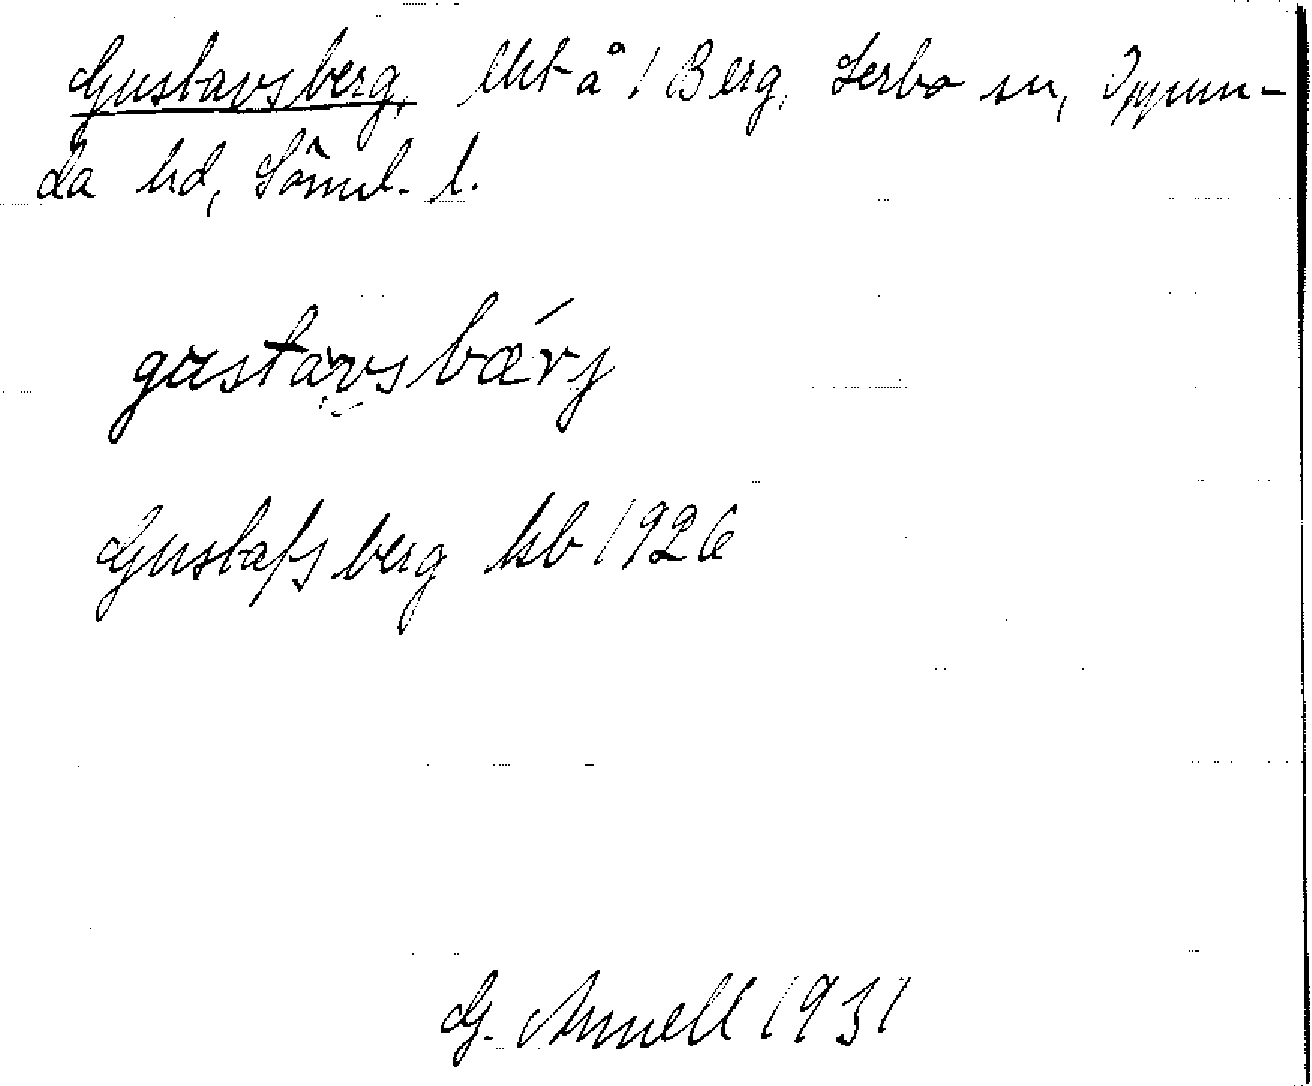 Gustavsberg, lht å 1 Berg, Lerbo sn, Oppun-
da hd, Söml. l.
gustavsbærj
Gustafsberg kb 1926
G. Arnell 1931